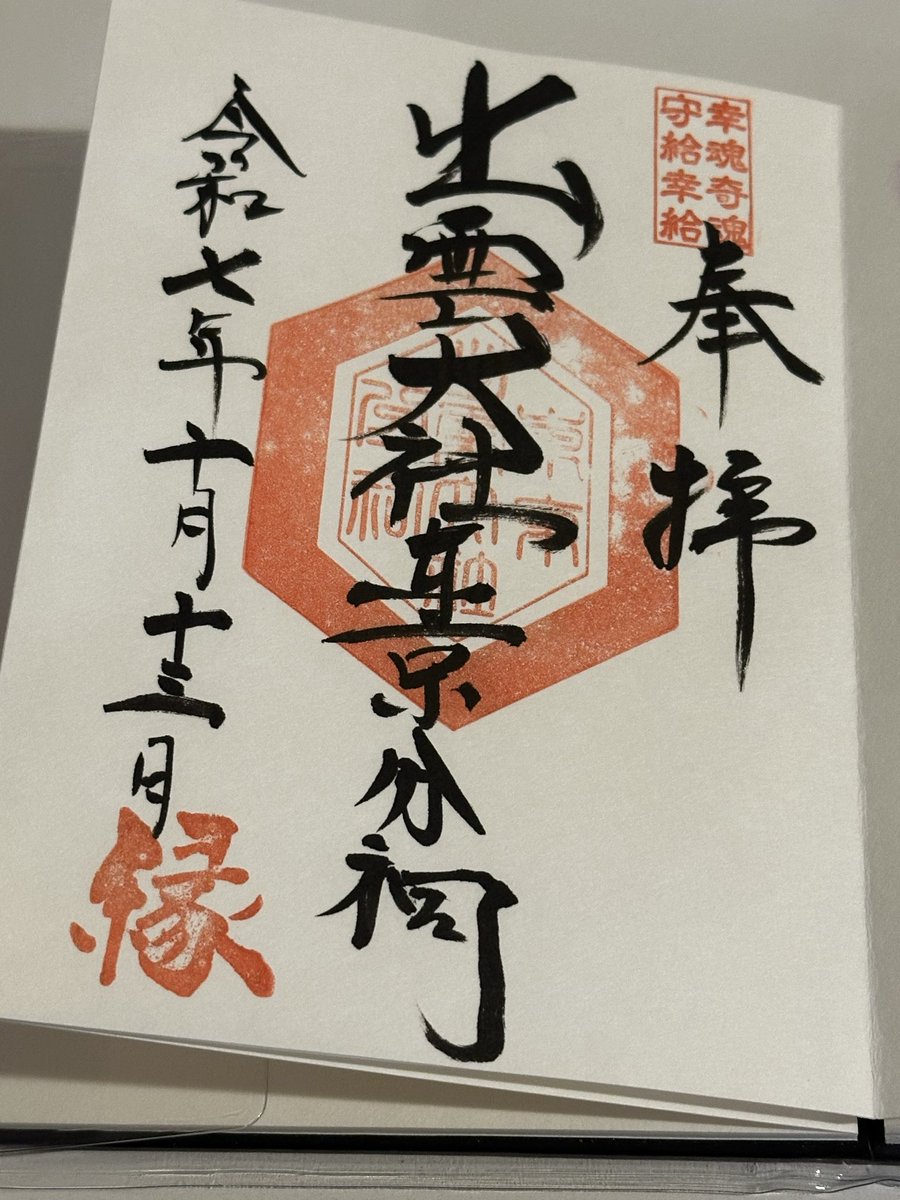 幸魂奇魂
守給幸給
奉拝
出雲大社東京分祠
令和七年十月十三日
縁